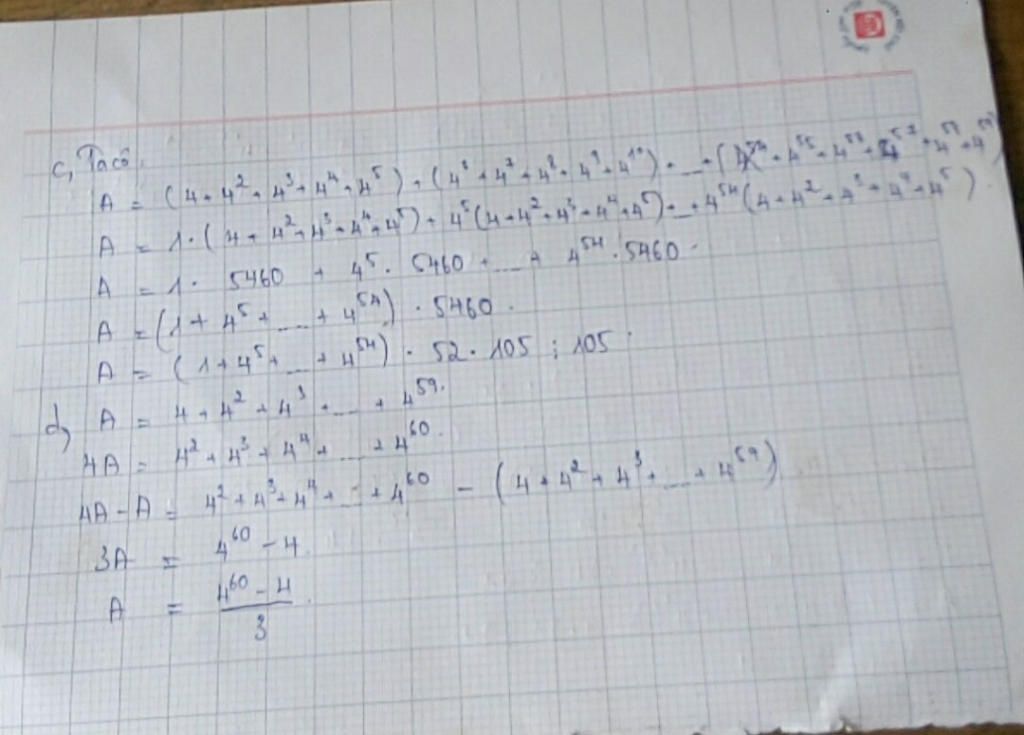 c, Ta có.
A = (4 + 4² + 4³ + 4⁴ + 4⁵) + (4⁶ + 4⁷ + 4⁸ + 4⁹ + 4¹⁰) + ... + ( 4⁵⁵ + 4⁵⁶ + 4⁵⁷ + 4⁵⁸ + 4⁵⁹)
A = 1 . (4 + 4² + 4³ + 4⁴ + 4⁵) + 4⁵ (4 + 4² + 4³ + 4⁴ + 4⁵) + ... + 4⁵⁴ (4 + 4² + 4³ + 4⁴ + 4⁵)
A = 1 . 5460 + 4⁵ . 5460 + ... + 4⁵⁴ . 5460 .
A = (1 + 4⁵ + ... + 4⁵⁴) . 5460 .
A = (1 + 4⁵ + ... + 4⁵⁴) . 52 . 105 ⋮ 105 .
d, A = 4 + 4² + 4³ + ... + 4⁵⁹.
4A = 4² + 4³ + 4⁴ + ... + 4⁶⁰.
4A - A = 4² + 4³ + 4⁴ + ... + 4⁶⁰ - (4 + 4² + 4³ + ... + 4⁵⁹)
3A = 4⁶⁰ - 4.
A = (4⁶⁰ - 4)/3 .